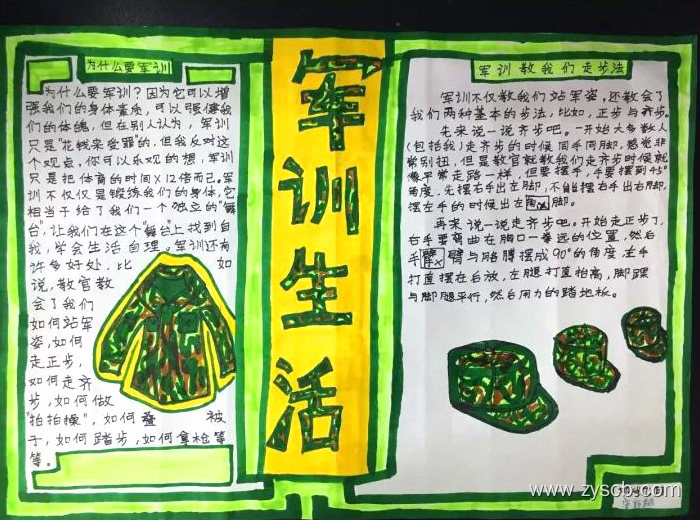 为什么要军训
为什么要军训?因为它可以增
强我们的身体素质,可以强健我
们的体魄,但在别人认为,军训
只是"花钱来受罪"的,但我反对这
个观点,你可以乐观的想,军训
只是把体育的时间×12倍而已。军
训不仅仅是锻练我们的身体,它
相当于给了我们一个独立的"舞
台",让我们在这个"舞台"上找到自
我,学会生活自理。军训还有
许多好处,比如
说,教官教
会了我们
如何站军
姿,如何
走正步,
如何走齐
步,如何做
"拍拍操",如何叠被
子,如何踏步,如何拿枪等
等。
军训生活
军训教我们走步法
军训不仅教我们站军姿,还教会了
我们两种基本的步法,比如,正步与齐步。
先来说一说齐步吧。一开始大多数人
(包括我)走齐步的时候同手同脚,感觉非
常别扭,但是教官就教我们走齐步时候就
像平常走路一样,但要摆手,手要摆到45°
角度,先摆右手出左脚,不能摆右手出右脚,
摆左手的时候出右脚。
再来说一说走齐步吧。开始走正步了,
右手要弯曲在胸口一拳远的位置,然后
手臂与胳膊摆成90°的角度,左手
打直摆在后放,左腿打直抬高,脚踝
与脚腿平行,然后用力的踏地板。
www.zyscb.com